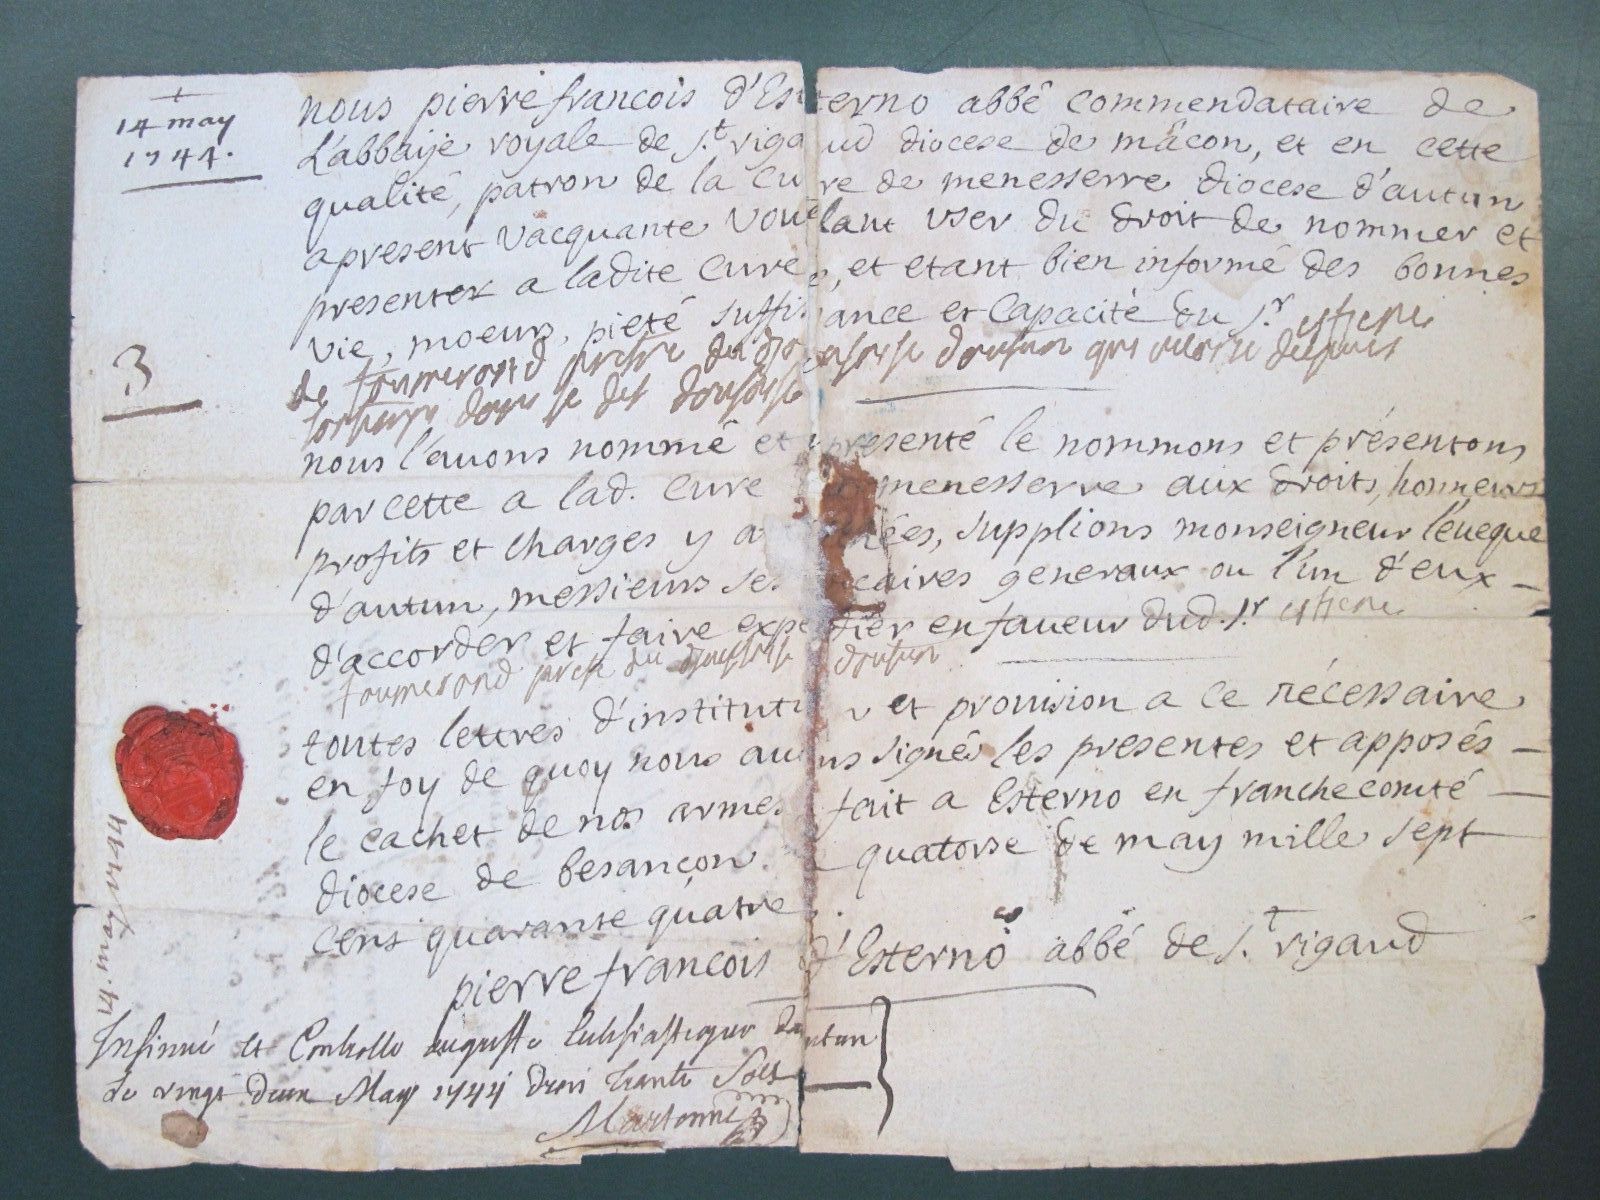 14 may
1744.
3
nous pierre francois d'Esterno abbé commendataire de
L'abbaije royale de s.t rigaud diocese de mâcon, et en cette
qualité, patron de la cure de menesserre diocese d'autun
apresent vacquante voulant user du droit de nommer et
presenter a ladite cure, et etant bien informé des bonnes
vie, moeurs, pieté suffisance et capacité du s.r
de
nous l'avons nommé et presenté le nommons et présentons
par cette a lad. cure menesserre aux droits, honneurs
profits et charges y supplions monseigneur l'eveque
d'autun, messieurs ses vicaires generaux ou l'un d'eux —
d'accorder et faire expedier en faveur dud. s.r
toutes lettres d'institution et provision a ce nécessaire
en foy de quoy nous avons signés les presentes et apposés —
le cachet de nos armes fait a Esterno en franchecomté —
diocese de besançon quatorse de may mille sept
cens quarante quatre
pierre francois d'Esterno abbé de s.t rigaud
Insinué et Controllé Ecclesiastiques dautun
le vingt deux May 1744 trente sols
14. may 1744